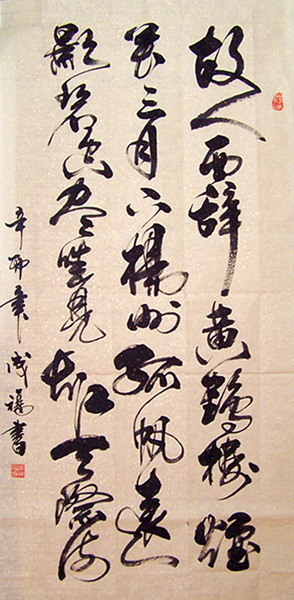 故人西辞黄鶴樓煙
花三月下揚州孤帆遠
影碧空尽唯見長江天際流
辛卯年 福書